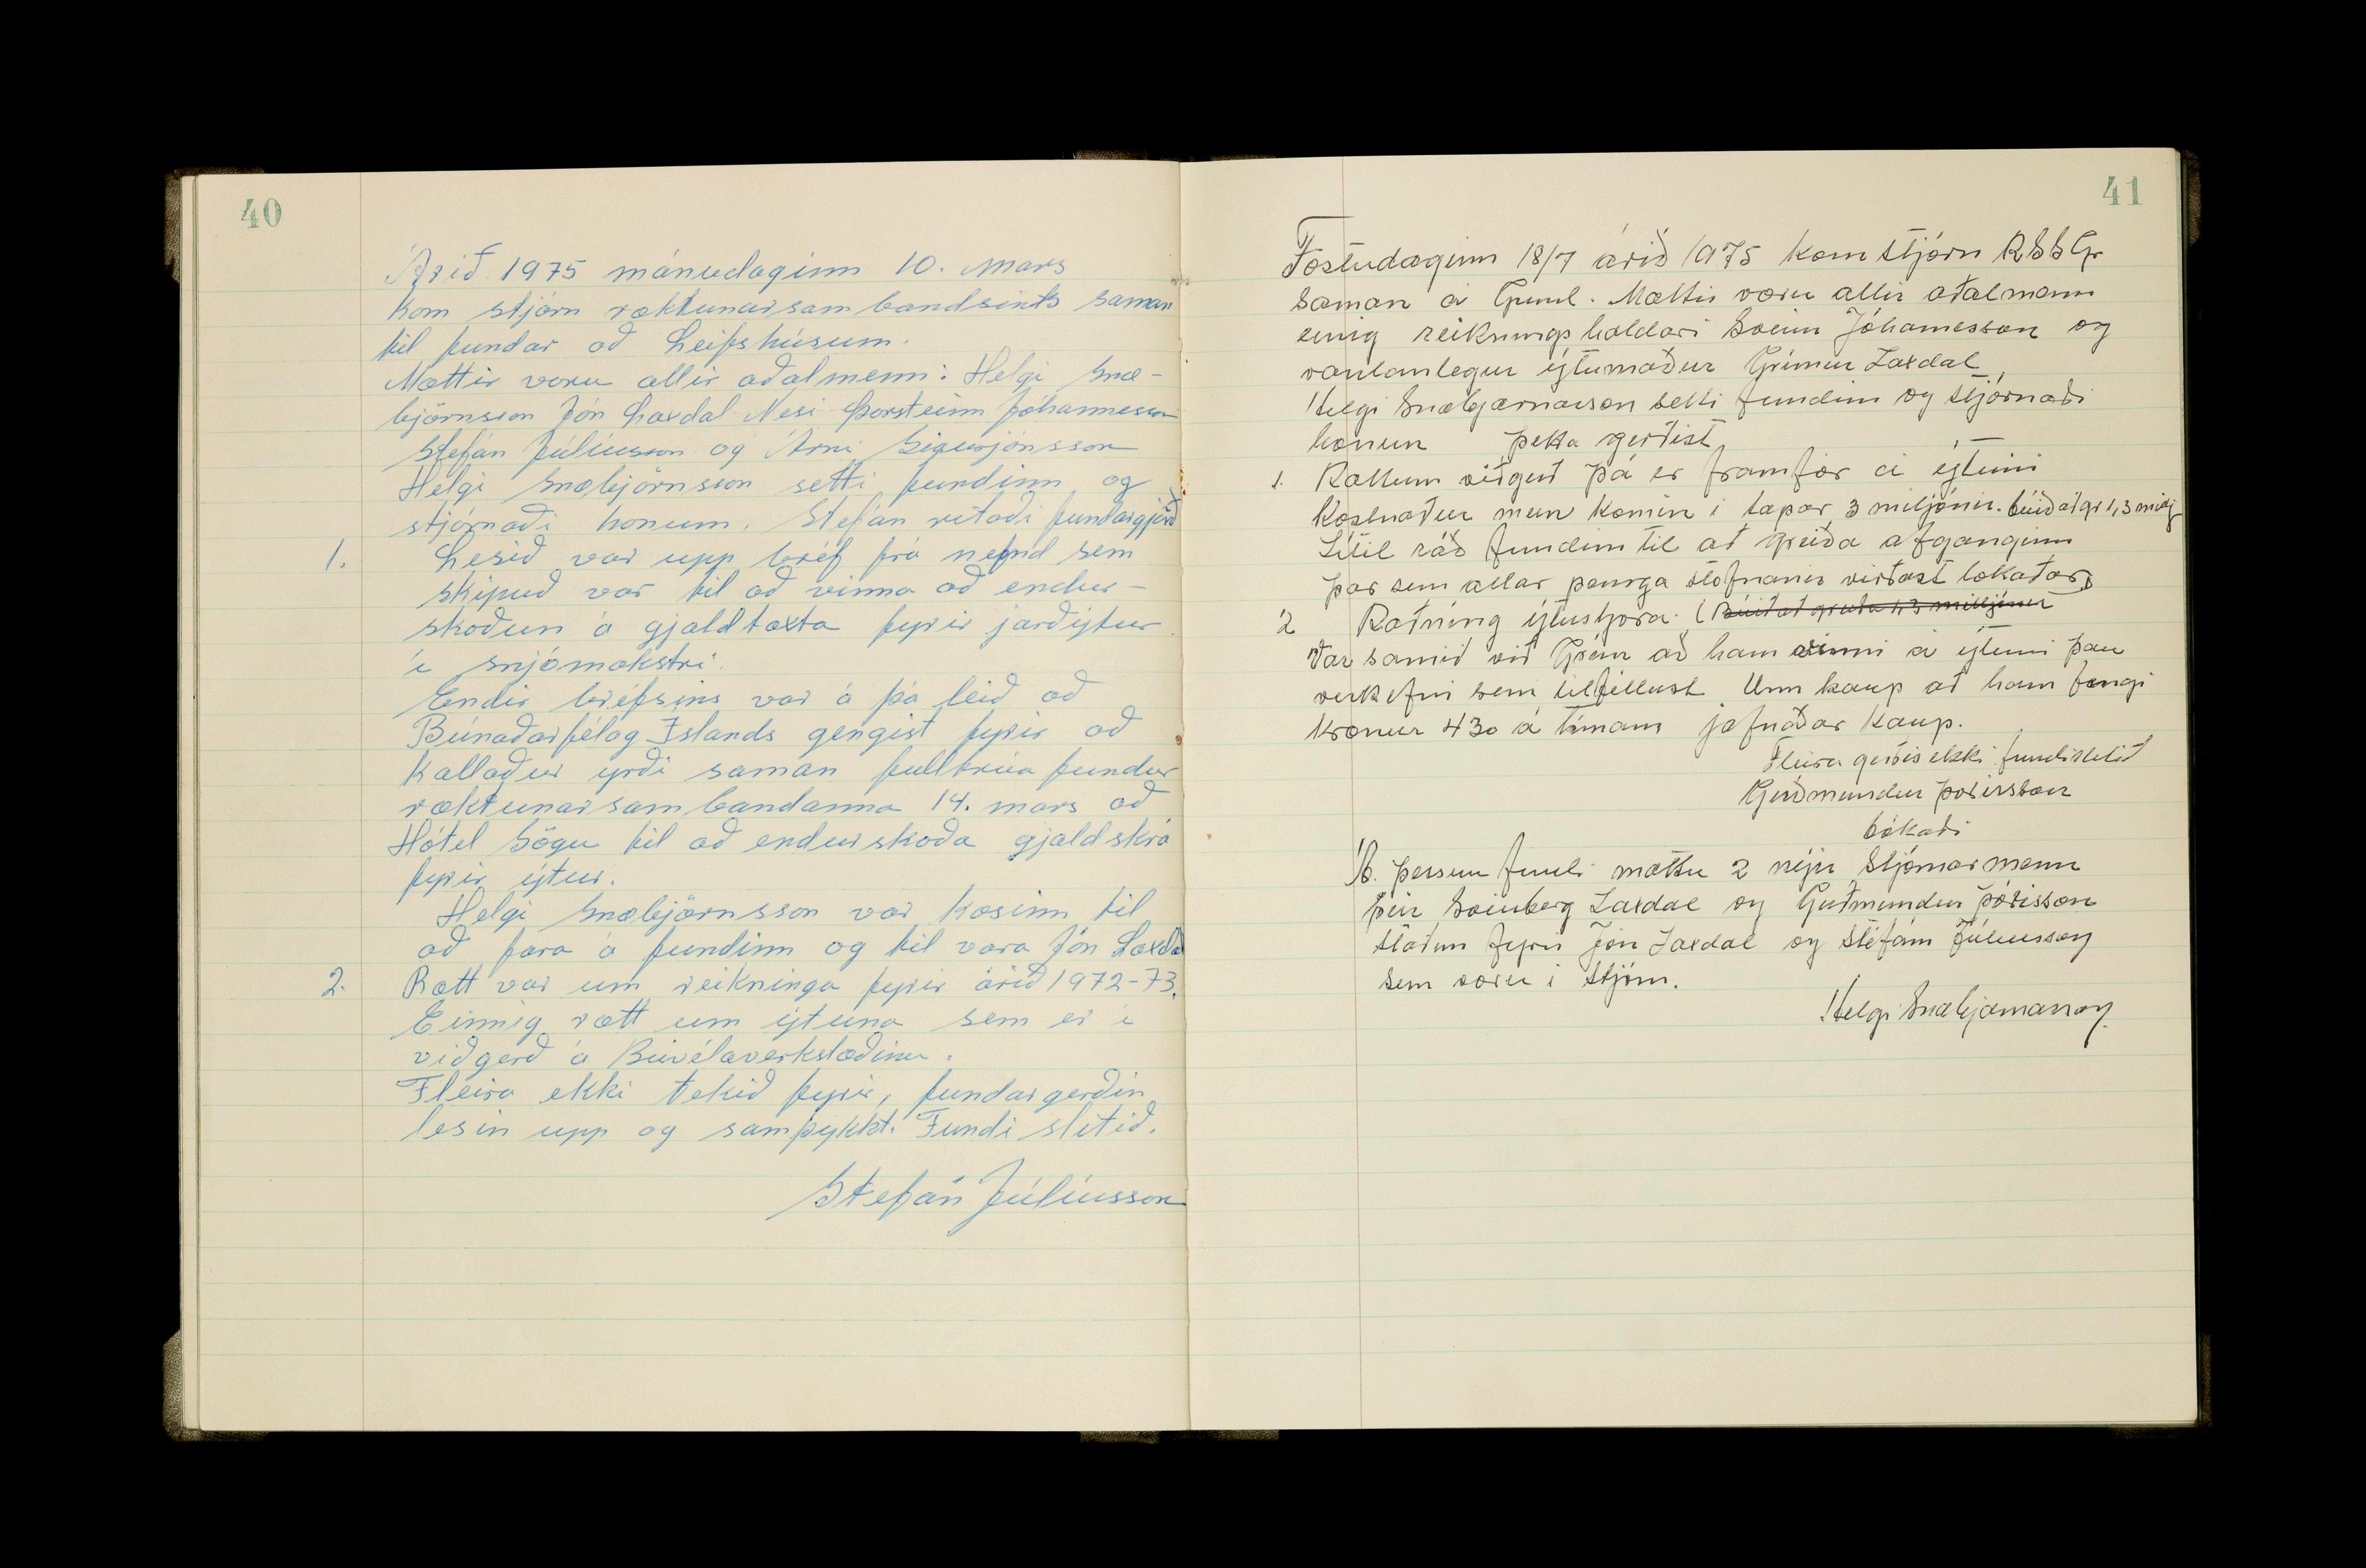 40
Árið 1975 mánudaginn 10. mars
kom stjórn ræktunarsambandsints saman
til fundar að Leifshúsum.
Mættir voru allir aðalmenn: Helgi Snæ-
björnsson Jón Laxdal Nesi Þorsteinn Jóhannesson
Stefán Júlíusson og Árni Sigurjónsson
Helgi Snæbjörnsson setti fundinn og
stjórnaði honum. Stefán ritaði fundargjörð
1. Lesið var upp bréf frá nefnd sem
skipuð var til að vinna að endur-
skoðun á gjaldtaxta fyrir jarðýtur
í snjómokstri.
Endir bréfsins var á þá leið að
Búnaðarfélag Íslands gengist fyrir að
kallaður yrði saman fulltrúa fundur
ræktunarsambandanna 14. mars að
Hótel Sögu til að endurskoða gjaldskrá
fyrir ýtur.
Helgi Snæbjörnsson var kosinn til
að fara á fundinn og til vara Jón Laxdal
2. Rætt var um reikninga fyrir árið 1972-73.
Einnig rætt um ýtuna sem er í
viðgerð á Búvélaverkstæðinu.
Fleira ekki tekið fyrir, fundargerðin
lesin upp og samþykkt. Fundi slitið.
Stefán Júlíusson
41
Föstudaginn 18/7 árið 1975 kom stjórn RSSGr
saman á Grund. Mættir voru allir aðalmenn
einig reiknings haldari Sveinn Jóhannesson og
vænlanlegur ýtumaður Grímur Laxdal
Helgi Snæbjörnsson setti fundinn og stjórnaði
honum þetta gerðist
1. Rættum viðgerð þá er framfór á ýtunni
Kostnaður mun komin í tapar 3 miljónir. búið at gr 1,3 milj
Lítil ráð fundin til at greiða afganginn
þar sem allar peninga stofnanir virðast lokaðar
2 Ráðning ýtustjóra. (Búið at greiða 1,3 milljónir
Var samið við Grím að hann vinni á ýtunni þau
verkefni sem tilfellust Um kaup at hann fengi
krónur 430 á tímann jafnaðar kaup.
Fleira gerðis ekki fundi slitið
Guðmundur Þórisson
bókaði
Á þessum fundi mættu 2 nýir stjórnarmenn
þeir Sveinberg Laxdal og Guðmundur Þórisson
staðinn fyrir Jón Laxdal og Stefán Júlíusson
sem voru í stjórn.
Helgi Snæbjörnsson